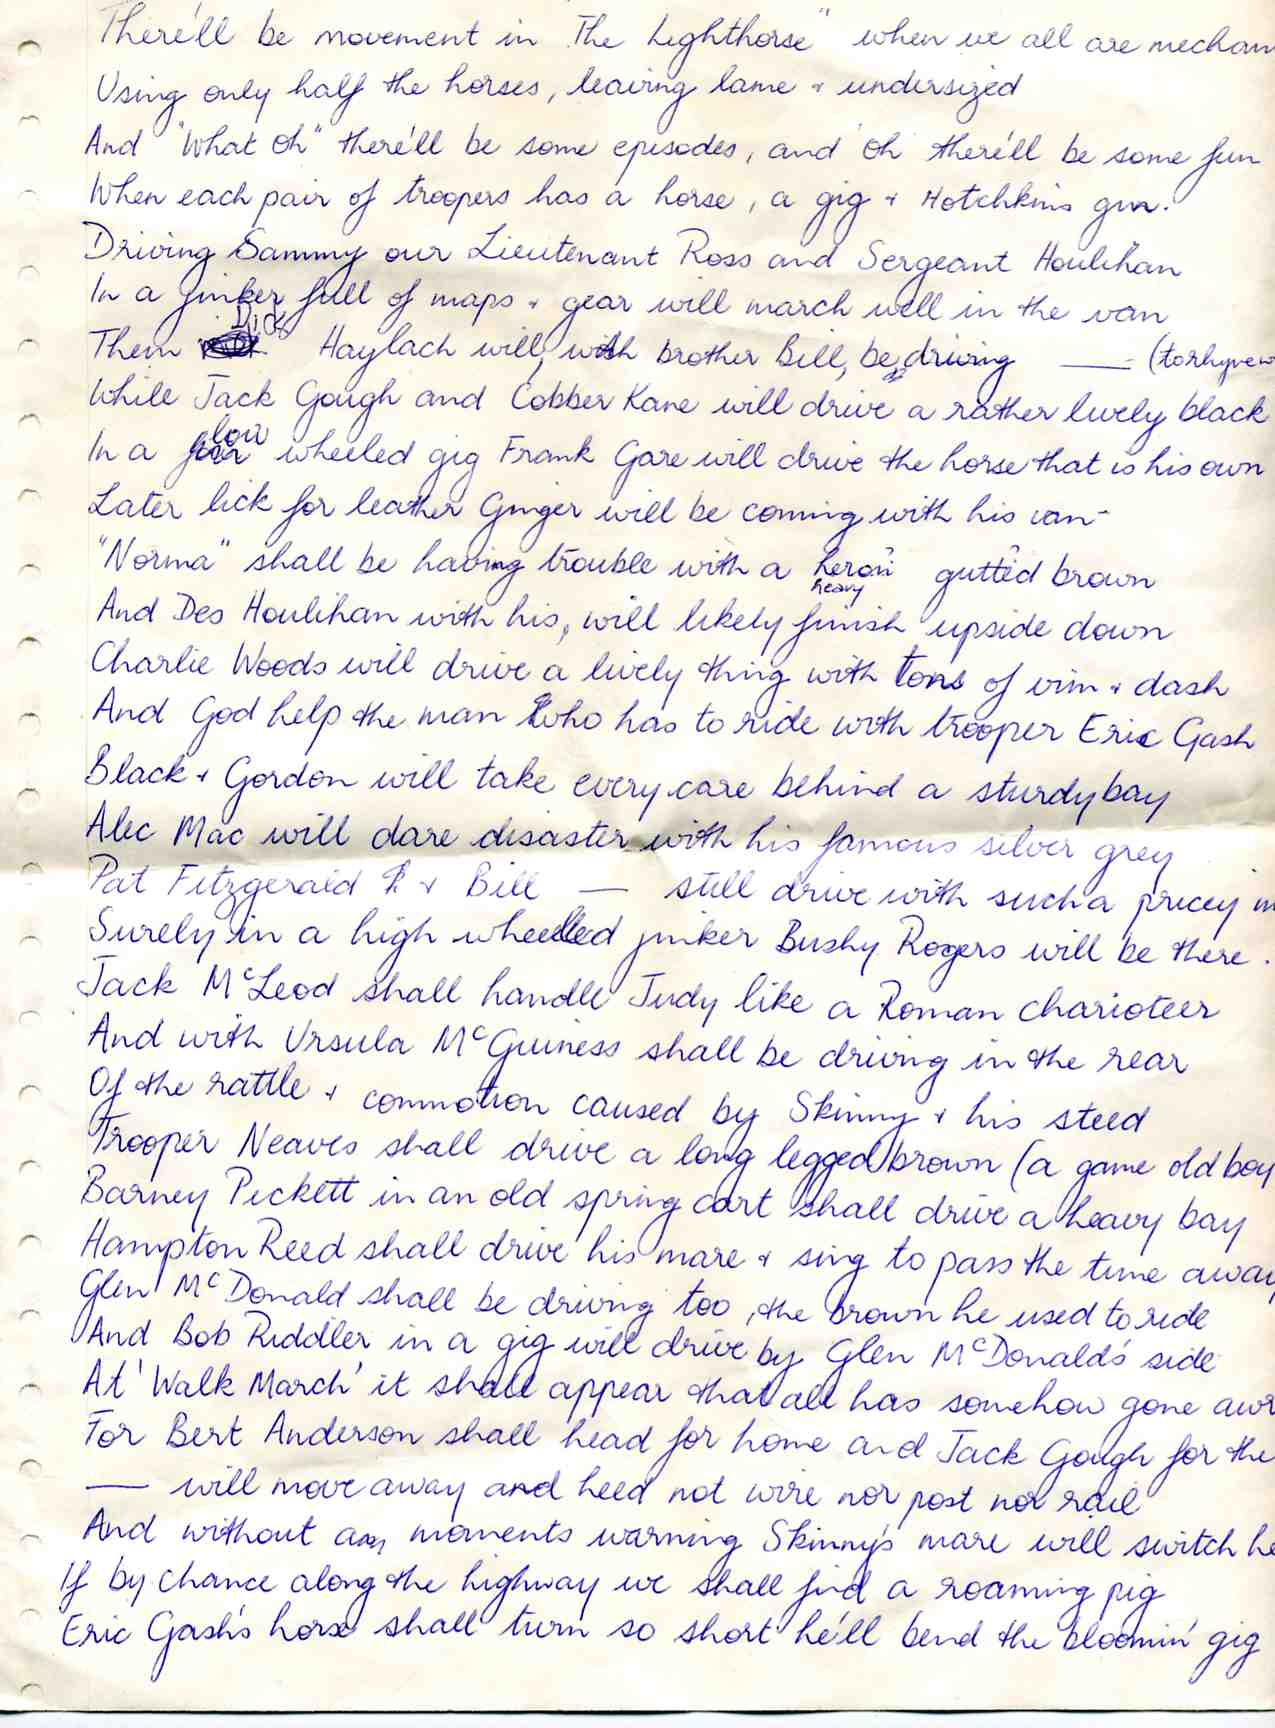 There'll be movement in "The Lighthorse" when we all are mechan
Using only half the horses, leaving lame & undersized
And "What Oh" there'll be some episodes, and 'Oh' there'll be some fun
When each pair of troopers has a horse, a gig & Hotchkins gun.
Driving Sammy our Lieutenant Ross and Sergeant Houlihan
In a jinker full of maps & gear will march well in the van
Then Dick Haylach will, with brother Bill, be driving — (to rhyme w
While Jack Gough and Cobber Kane will drive a rather lively black
In a low wheeled gig Frank Gare will drive the horse that is his own
Later lick for leather Ginger will be coming with his van-
"Norma" shall be having trouble with a heron heavy gutted brown
And Des Houlihan with his, will likely finish upside down
Charlie Woods will drive a lively thing with tons of vim & dash
And God help the man who has to ride with trooper Eric Gash
Black & Gordon will take every care behind a sturdy bay
Alec Mac will dare disaster with his famous silver grey
Pat Fitzgerald & Bill — still drive with such a pricey m
Surely in a high wheeled jinker Bushy Rogers will be there.
Jack McLeod shall handle Judy like a Roman charioteer
And with Ursula McGuiness shall be driving in the rear
Of the rattle & commotion caused by Skinny & his steed
Trooper Neaves shall drive a long legged brown (a game old boy
Barney Pickett in an old spring cart shall drive a heavy bay
Hampton Reed shall drive his mare & sing to pass the time away
Glen McDonald shall be driving too, the brown he used to ride
And Bob Riddler in a gig will drive by Glen McDonald's side
At 'Walk March' it shall appear that all has somehow gone awr
For Bert Anderson shall head for home and Jack Gough for the
— will move away and heed not wire nor post nor rail
And without any moments warning Skinny's mare will switch he
If by chance along the highway we shall find a roaming pig
Eric Gash's horse shall turn so short he'll bend the bloomin' gig